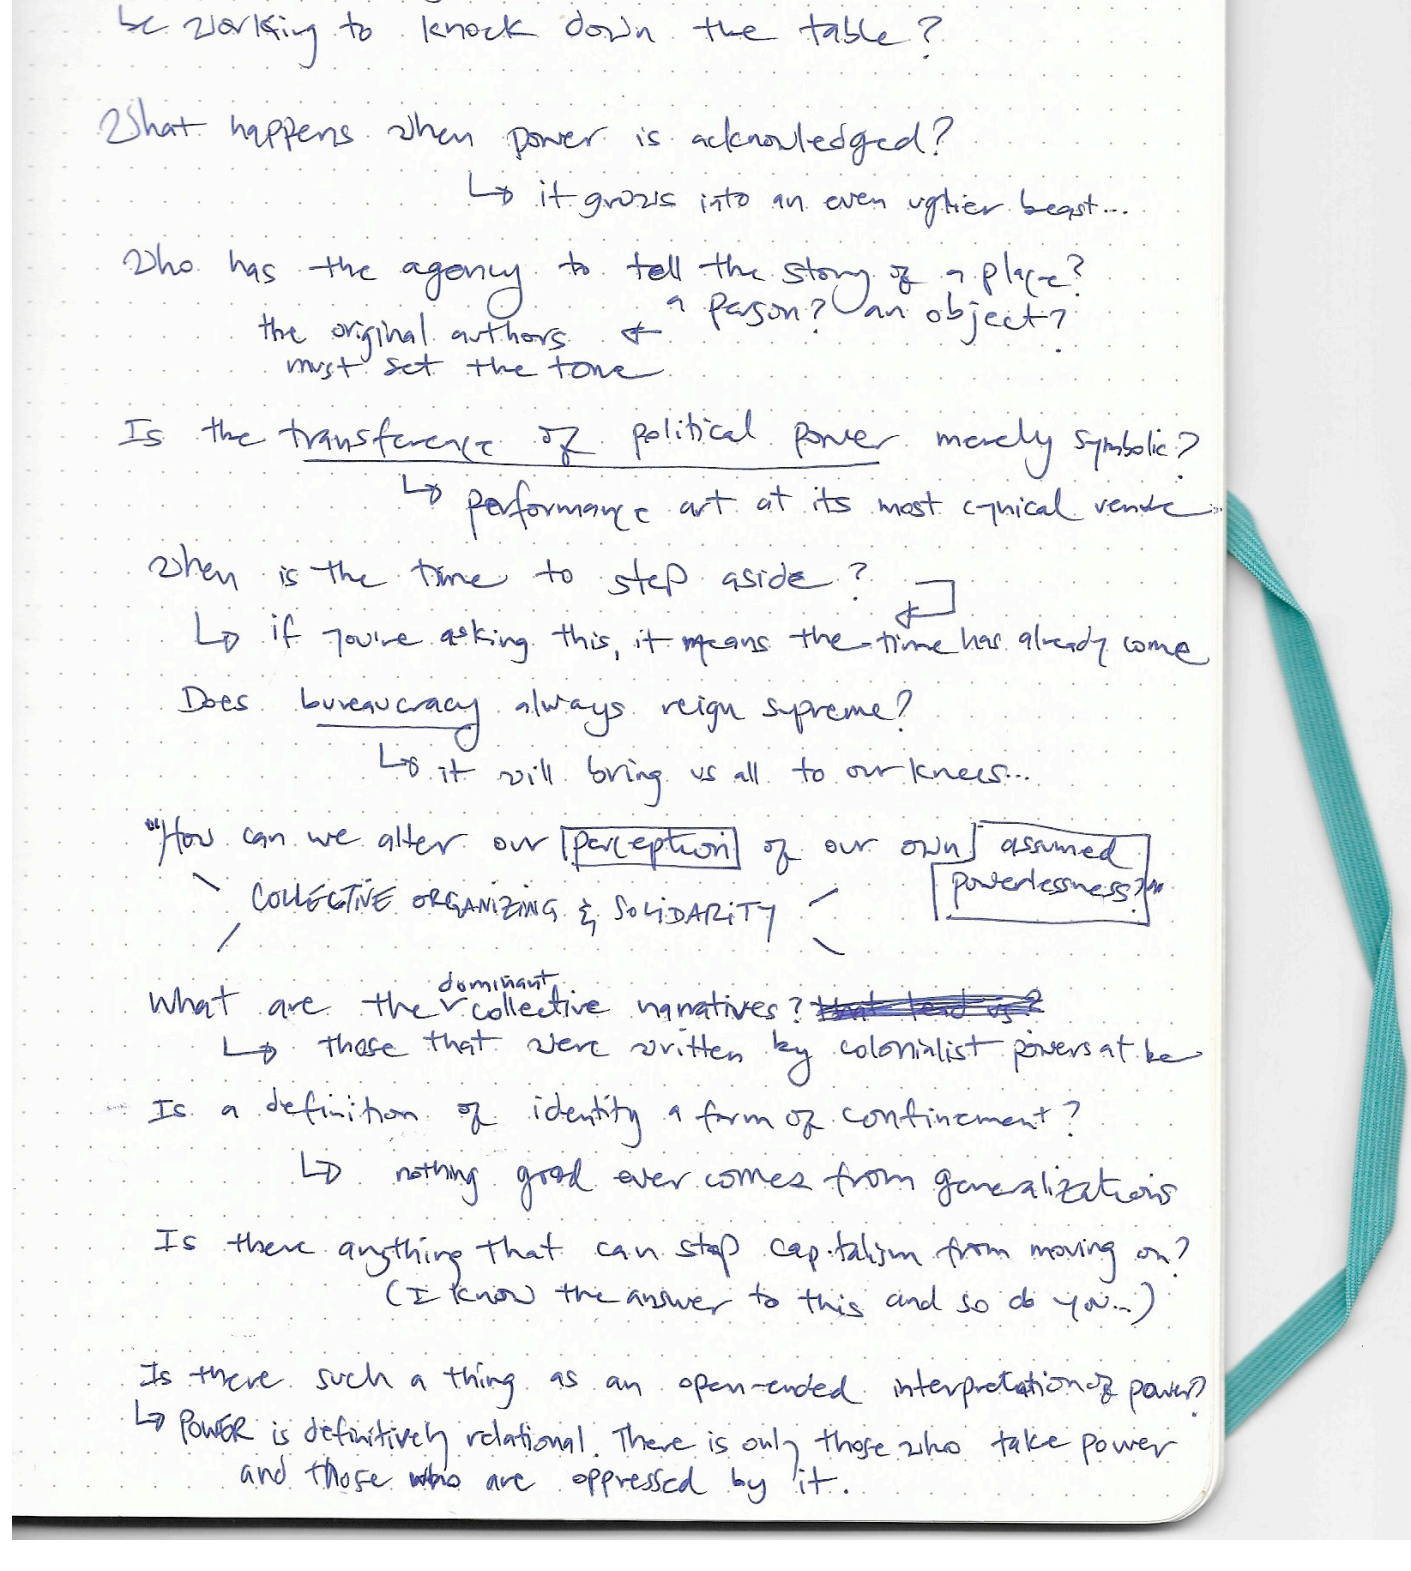 be working to knock down the table?
What happens when power is acknowledged?
↳ it grows into an even uglier beast...
Who has the agency to tell the story of a place?
a person? an object?
the original authors ←
must set the tone
Is the transference of political power merely symbolic?
↳ performance art at its most cynical venue...
When is the time to step aside?
↳ if you're asking this, it means the time has already come
Does bureaucracy always reign supreme?
↳ it will bring us all to our knees...
"How can we alter our perception of our own assumed
powerlessness?"
COLLECTIVE ORGANIZING & SOLIDARITY
dominant
What are the collective narratives? that lend us?
↳ those that were written by colonialist powers at be
Is a definition of identity a form of confinement?
↳ nothing good ever comes from generalizations
Is there anything that can stop capitalism from moving on?
(I know the answer to this and so do you...)
Is there such a thing as an open-ended interpretation of power?
↳ POWER is definitively relational. There is only those who take power
and those who are oppressed by it.